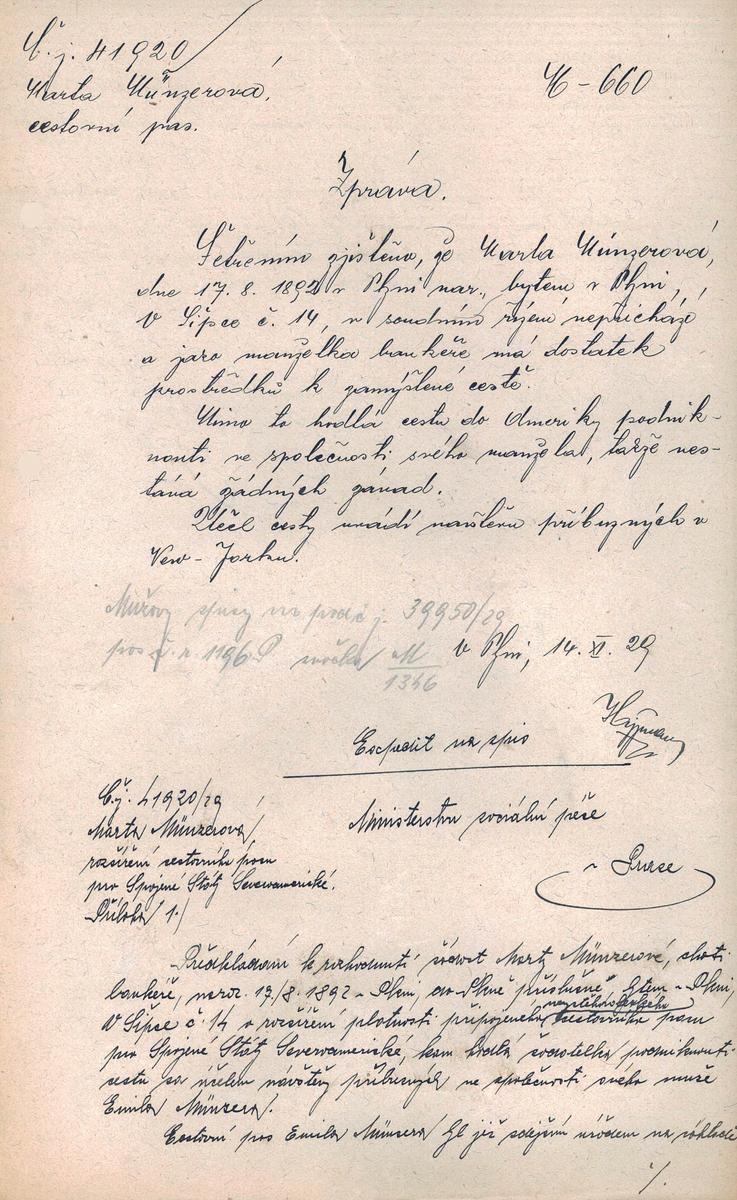 Č. j. 41920
Marta Münzerová,
cestovní pas.
M – 660
Zpráva.
Šetřením zjištěno, že Marta Münzerová,
dne 17. 8. 1892 v Plzni nar., bytem v Plzni,
V Šipce č. 14, v soudním řízení nepřichází
a jako manželka bankéře má dostatek
prostředků k zamýšlené cestě.
Mimo to hodlá cestu do Ameriky podnik-
nouti ve společnosti svého manžela, takže nes-
tává žádných závad.
Účel cesty uvádí návštěvu příbuzných v
New-Jorku.
Mužovy spisy na pod č. j. 39950/29
pas č. r. 1196 M
1346
V Plzni, 14. XI. 29
Expedit na spis
Č.j. 41920/29
Marta Münzerová
rozšíření cestovního pasu
pro Spojené Státy Severoamerické.
Příloha 1./
Ministerstvu sociální péče
v Praze
Předkládám k rozhodnutí žádost Marty Münzerové, choti
bankéře, naroz. 17./8. 1892 v Plzni, do Plzně příslušné, bytem v Plzni,
V Šipce č. 14 o rozšíření platnosti připojeného cestovního pasu
pro Spojené Státy Severoamerické, kam hodlá žadatelka podniknouti
cestu za účelem návštěvy příbuzných ve společnosti svého muže
Emila Münzera.
Cestovní pas Emila Münzera byl již zdejším úřadem na základě
./.